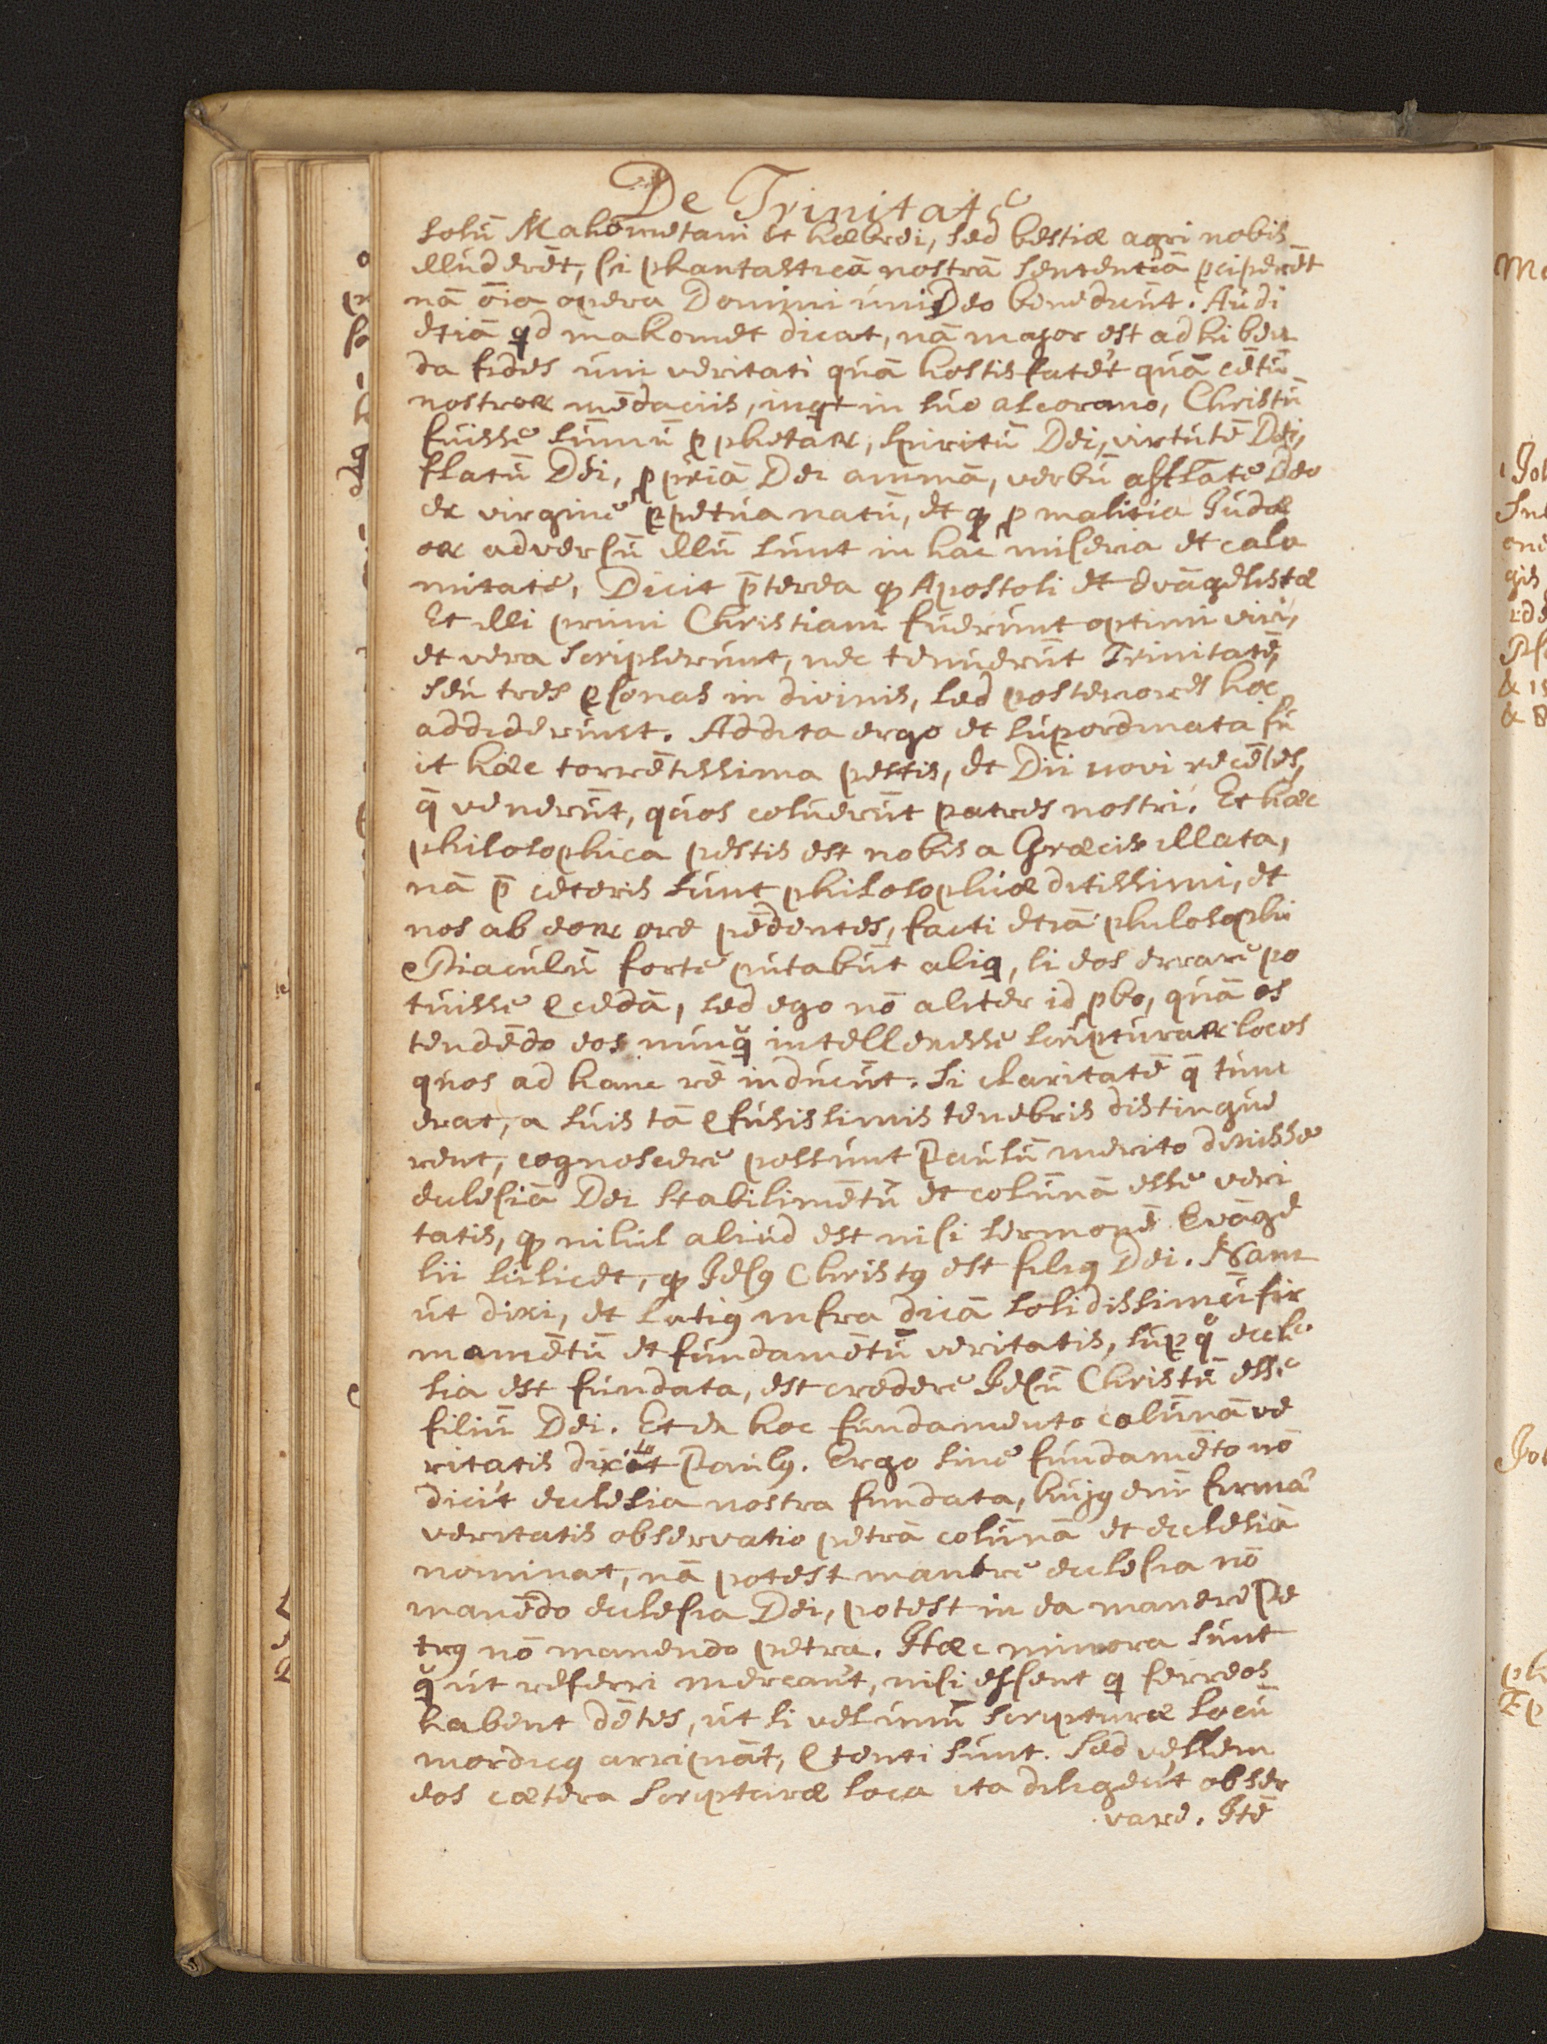 De Trinitate
solū Mahometani et hæbrei, sed bestiæ agri nobis
illuderēt, si phantasticā nostrā sententiā pciperēt
nā oīa opera Domini uni Deo benedicūt. Audi
etiā qd mahomet dicat, nā major est adhiben
da fides uni veritati quā hostis fatet quā cētū
nostrorum mēdaciis, inqt in suo alcorano, Christū
fuisse sūmū pphetarum, spiritū Dei, virtutē Dei,
flatū Dei, ppriā Dei animā, verbū afflate Deo
ex virgine ppetua natū, et q p malitia Judæ
orum adversū illū sunt in hac miseria et cala
mitate, Dicit p̄terea q Apostoli et Evāgelistæ
Et illi primi Christiani fuerunt optimi viri,
et vera scripserunt, nec tenuerūt Trinitatē,
seu tres psonas in divinis, sed posteriores hoc
addiderunt. Addita ergo et supordinata fu
it hæc torrētissima pestis, et Dii novi recētes,
q̄ venerūt, quos coluerūt patres nostri. Et hæc
philosophica pestis est nobis a Græcis illata,
nā p̄ ceteris sunt philosophiæ ditissimi, et
nos ab eorum ore pēdentes, facti etiā philosophi
Piaculū forte putabūt aliq, si eos errare po
tuisse credā, sed ego nō aliter id pbo, quā os
tendēdo eos nunq̄ intellexisse scripturarum locos
quos ad hanc rē inducūt. Si claritatē q̄ tunc
erat, a suis tā cfusissimis tenebris distingue
rent, cognoscere possunt Paulū merito dixisse
eclesiā Dei stabilimētū et colūnā esse veri
tatis, q nihil aliud est nisi sermonē Evāge
lii scilicet, q Jesꝰ Christꝰ est filiꝰ Dei. Nam
ut dixi, et latiꝰ infra dicā solidissimū fir
mamētū et fundamētū veritatis, sup q° eccle
sia est fundata, est credere Jesū Christū esse
filiū Dei. Et ex hoc fundamento colūnā ve
ritatis dixit Paulꝰ. Ergo sine fundamēto nō
dicit eclesia nostra fundata, hujꝰ enī firmā
veritatis observatio petrā colūnā et eclesiā
nominat, nā potest manere eclesia nō
manēdo eclesia Dei, potest in ea manere Pe
trꝰ nō manendo petra. Hæc minora sunt
q̄ ut referri mereant, nisi essent q ferreos
habent dētes, ut si vel unū scripturæ locū
mordicꝰ arripiāt, ctenti sunt. Sed vellem
eos cætera scripturæ loca ita diligēūt obser
vare. Itē